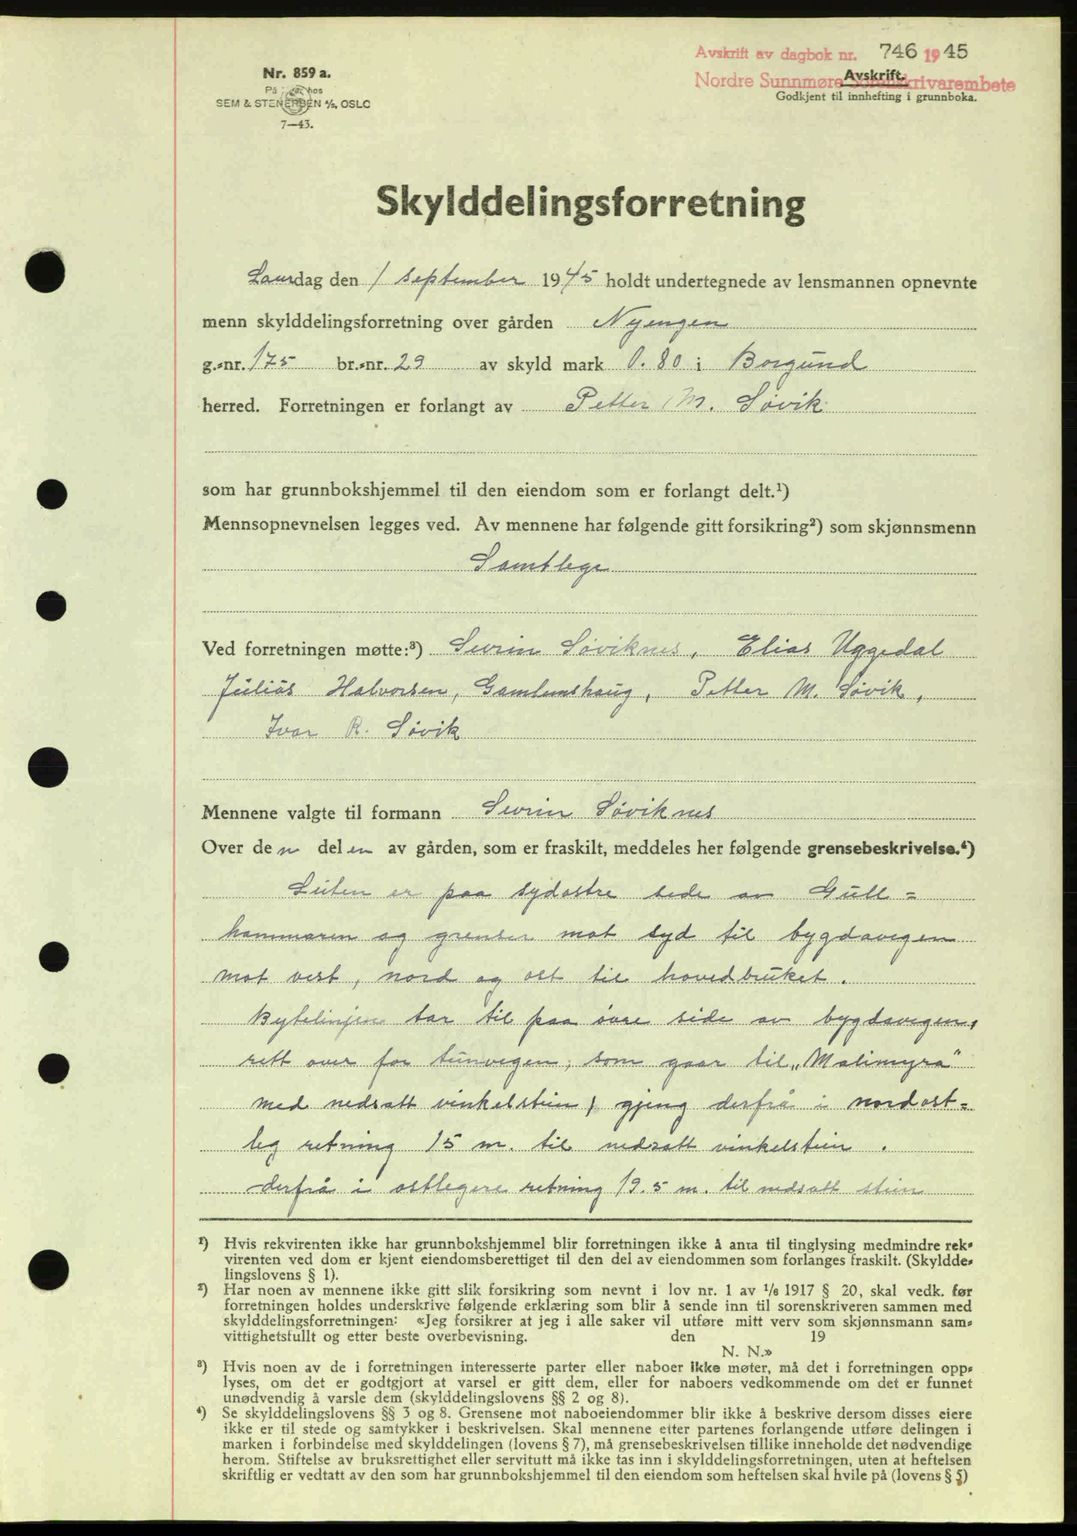 Avskrift av dagbok nr. 746 1945
Nordre Sunnmøre Sorenskrivarembete
Avskrift.
Godkjent til innhefting i grunnboka.
Nr. 859 a.
På hos
SEM & STENERSEN A/S, OSLO
7—43.
Skylddelingsforretning
Laurdag den 1 september 1945 holdt undertegnede av lensmannen opnevnte
menn skylddelingsforretning over gården Nyengen
g.-nr. 175 br.-nr. 29 av skyld mark 0.80 i Borgund
herred. Forretningen er forlangt av Petter M. Søvik
som har grunnbokshjemmel til den eiendom som er forlangt delt.¹)
Mennsopnevnelsen legges ved. Av mennene har følgende gitt forsikring²) som skjønnsmenn
Samtlege
Ved forretningen møtte:³) Sevrin Søviknes, Elias Uggedal
Júliús Halvorsen, Gamlemshaug, Petter M. Søvik,
Ivar R. Søvik
Mennene valgte til formann Sevrin Søviknes
Over den delen av gården, som er fraskilt, meddeles her følgende grensebeskrivelse.⁴)
Luten er paa sydostre side av Gull=
hammaren og grenser mot syd til bygdavegen
mot vest, nord og ost til hovedbruket.
Bytelinjen tar til paa øvre side av bygdavegen,
rett over for tunvegen, som gaar til „Malimyra"
med nedsatt vinkelstein, gjeng derfrå i nordost=
leg retning 15 m. til nedsatt vinkelstein.
derfrå i ostlegere retning 19.5 m. til nedsatt stein
¹) Hvis rekvirenten ikke har grunnbokshjemmel blir forretningen ikke å anta til tinglysing medmindre rek-
virenten ved dom er kjent eiendomsberettiget til den del av eiendommen som forlanges fraskilt. (Skyldde-
lingslovens § 1).
²) Har noen av mennene ikke gitt slik forsikring som nevnt i lov nr. 1 av 1/6 1917 § 20, skal vedk. før
forretningen holdes underskrive følgende erklæring som blir å sende inn til sorenskriveren sammen med
skylddelingsforretningen: «Jeg forsikrer at jeg i alle saker vil utføre mitt verv som skjønnsmann sam-
vittighetsfullt og etter beste overbevisning. den 19
N. N.»
³) Hvis noen av de i forretningen interesserte parter eller naboer ikke møter, må det i forretningen opp-
lyses, om det er godtgjort at varsel er gitt dem, eller for naboers vedkommende om det er funnet
unødvendig å varsle dem (skylddelingslovens §§ 2 og 8).
⁴) Se skylddelingslovens §§ 3 og 8. Grensene mot naboeiendommer blir ikke å beskrive dersom disses eiere
ikke er til stede og samtykker i beskrivelsen. Skal mennene etter partenes forlangende utføre delingen i
marken i forbindelse med skylddelingen (lovens § 7), må grensebeskrivelsen tillike inneholde det nødvendige
herom. Stiftelse av bruksrettighet eller servitutt må ikke tas inn i skylddelingsforretningen, uten at heftelsen
skriftlig er vedtatt av den som har grunnbokshjemmel til den eiendom som heftelsen skal hvile på (lovens § 5)